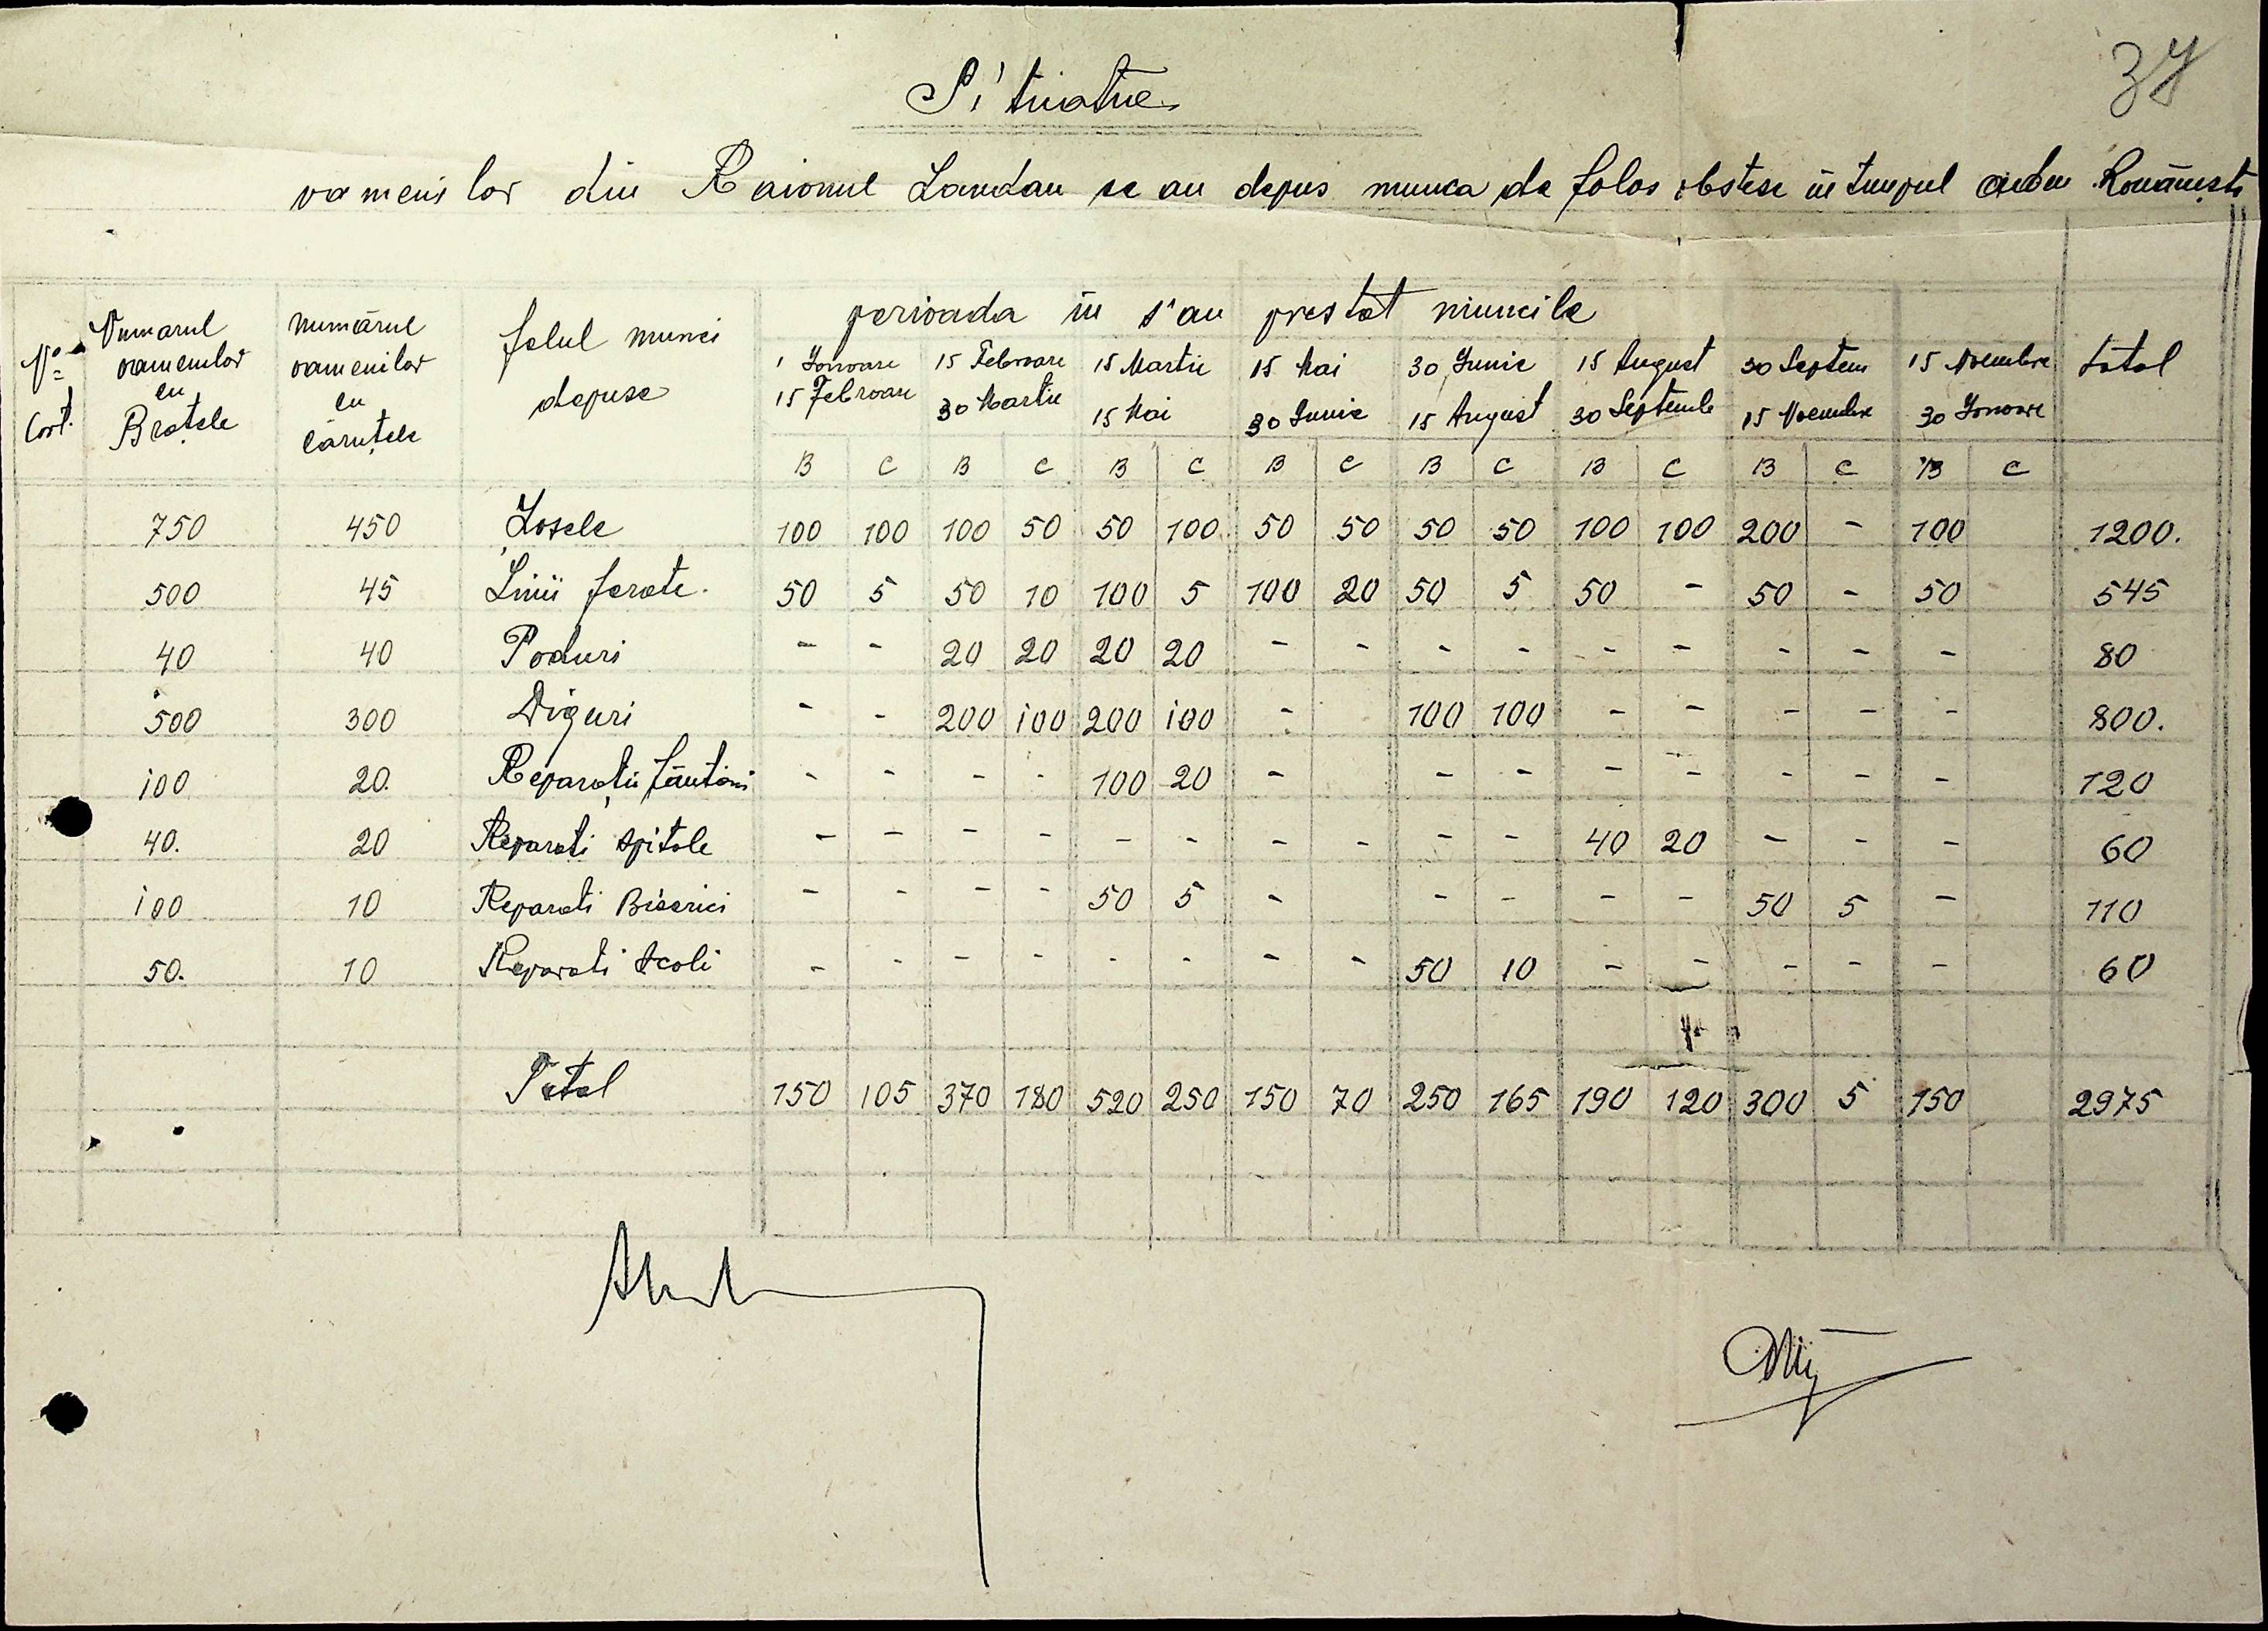 37
Situatie
oamenilor din Raionul Landau ce au depus munca de folos obstesc în timpul Românesti
No Cort. | Numarul oamenilor cu Brațele | numărul oamenilor cu Căruțele | felul munci depuse | perioada în s'au prestat muncile | total
1 Ianuare 15 Februare | 15 Februare 30 Martie | 15 Martie 15 Mai | 15 Mai 30 Iunie | 30 Iunie 15 August | 15 August 30 Septemb | 30 Septem 15 Noembre | 15 Noembre 30 Ianuare
B C B C B C B C B C B C B C B C
750 450 Șosele 100 100 100 50 50 100 50 50 50 50 100 100 200 - 100 1200.
500 45 Linii ferate. 50 5 50 10 100 5 100 20 50 5 50 - 50 - 50 545
40 40 Poduri - - 20 20 20 20 - - - - - - - - - 80
500 300 Diguri - - 200 100 200 100 - 100 100 - - - - - 800.
100 20. Reparații fântâni - - - - 100 20 - - - - - - - - 120
40. 20 Reparati spitale - - - - - - - - - - 40 20 - - - 60
100 10 Reparati Biserici - - - - 50 5 - - - - - 50 5 - 110
50. 10 Reparati Scoli - - - - - - - - 50 10 - - - - - 60
Total 150 105 370 180 520 250 150 70 250 165 190 120 300 5 150 2975